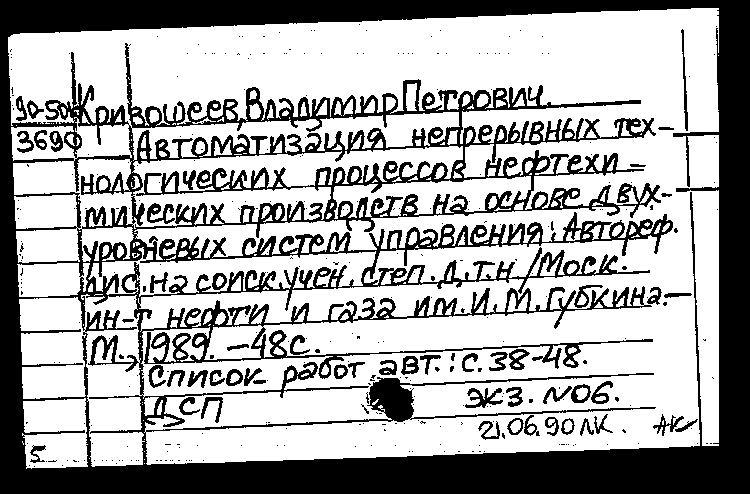 90-50
Кривошеев, Владимир Петрович.
3690
Автоматизация непрерывных тех-
нологических процессов нефтехи-
мических производств на основе двух-
уровневых систем управления: Автореф.
дис. на соиск. учен. степ. д.т.н / Моск.
ин-т нефти и газа им. И.М. Губкина. —
М., 1989. — 48 с.
Список работ авт.: с. 38-48.
ДСП
экз. № 06.
21.06.90 ЛК. АК
5